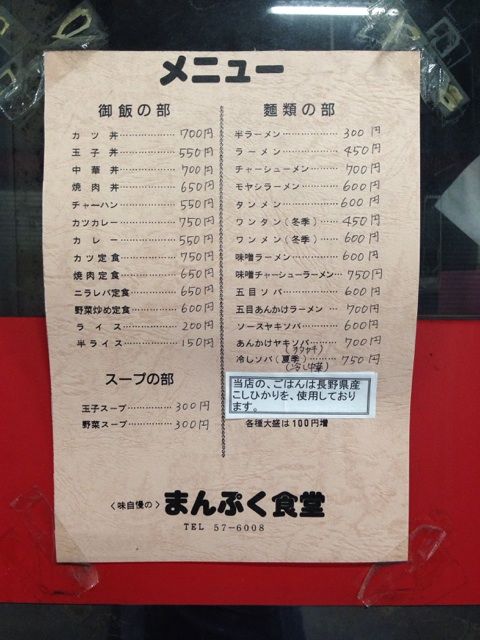 メニュー
御飯の部
カツ丼……………700円
玉子丼……………550円
中華丼……………700円
焼肉丼……………650円
チャーハン…………550円
カツカレー…………750円
カレー……………550円
カツ定食…………750円
焼肉定食…………650円
ニラレバ定食………650円
野菜炒め定食………600円
ライス……………200円
半ライス…………150円
スープの部
玉子スープ…………300円
野菜スープ…………300円
麺類の部
半ラーメン…………300円
ラーメン……………450円
チャーシューメン……700円
モヤシラーメン………600円
タンメン……………600円
ワンタン(冬季)……450円
ワンメン(冬季)……600円
味噌ラーメン…………600円
味噌チャーシューラーメン…750円
五目ソバ……………600円
五目あんかけラーメン…700円
ソースヤキソバ………600円
あんかけヤキソバ……700円
(カタヤキ)
冷しソバ(夏季)……750円
(冷し中華)
当店の、ごはんは長野県産
こしひかりを、使用しており
ます。
各種大盛は100円増
〈味自慢の〉まんぷく食堂
TEL 57-6008